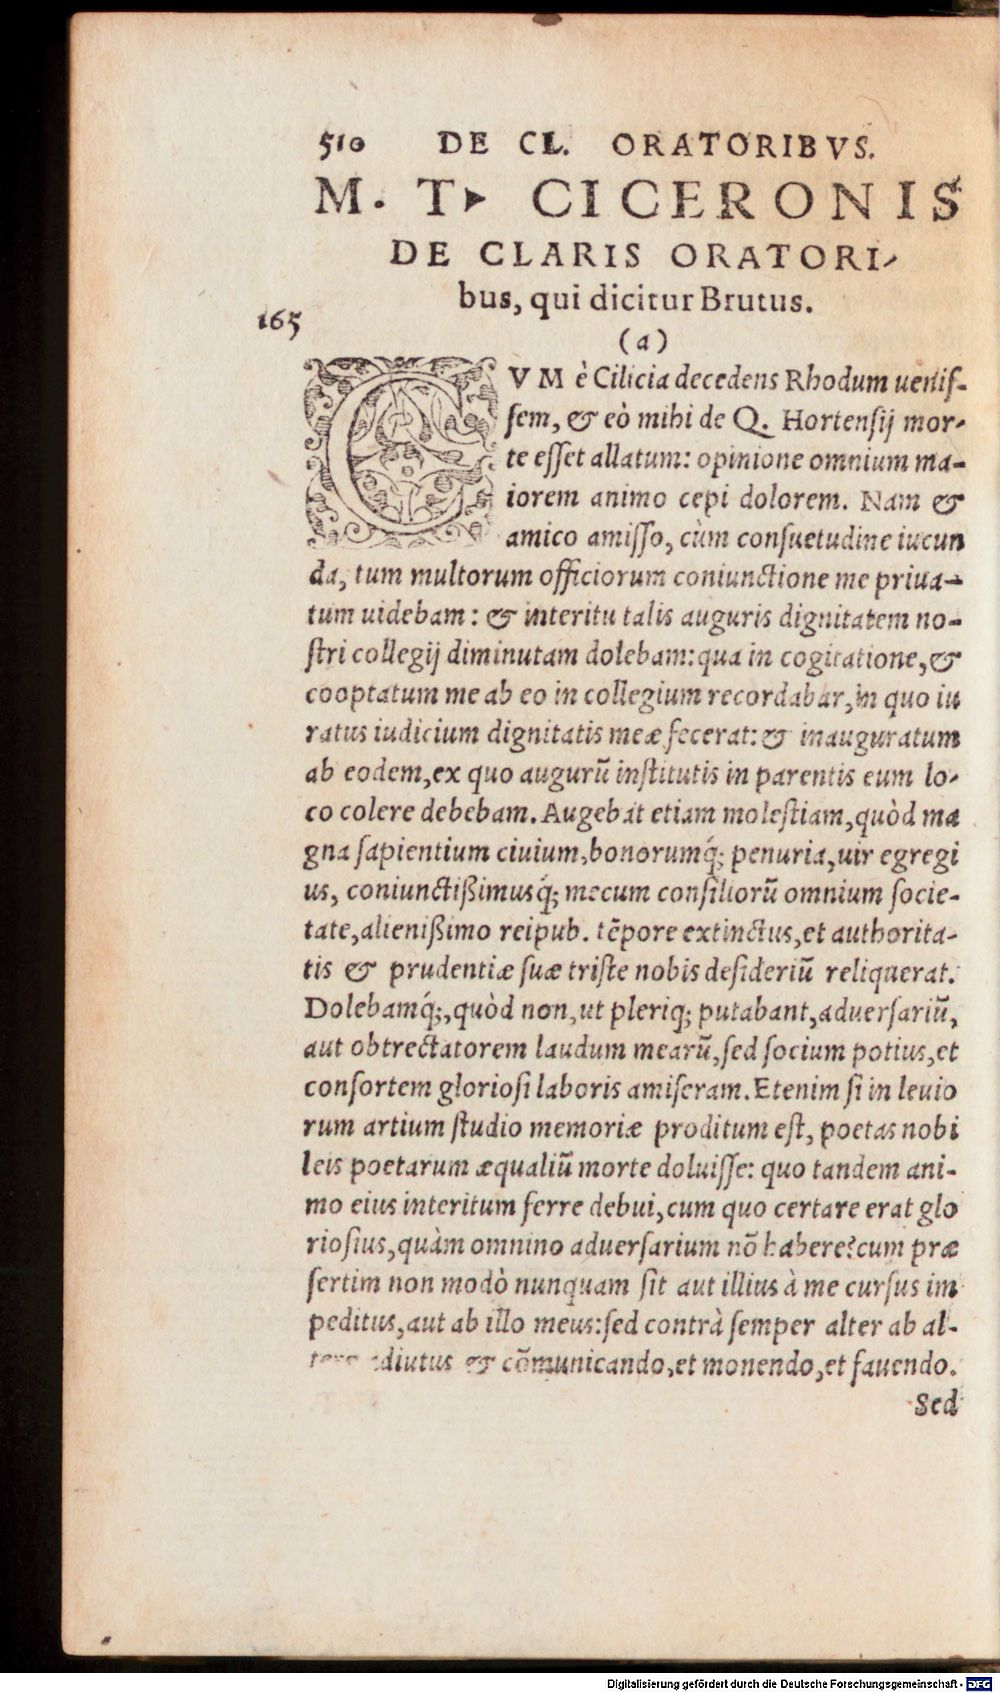 510 DE CL. ORATORIBVS.
M. T. CICERONIS
DE CLARIS ORATORI-
bus, qui dicitur Brutus.
165
(a)
CVM è Cilicia decedens Rhodum uenis-
sem, & eò mihi de Q. Hortensij mor-
te esset allatum: opinione omnium ma-
iorem animo cepi dolorem. Nam &
amico amisso, cùm consuetudine iucun
da, tum multorum officiorum coniunctione me priua-
tum uidebam: & interitu talis auguris dignitatem no-
stri collegij diminutam dolebam: qua in cogitatione, &
cooptatum me ab eo in collegium recordabar, in quo iu
ratus iudicium dignitatis meæ fecerat: & inauguratum
ab eodem, ex quo augurū institutis in parentis eum lo-
co colere debebam. Augebat etiam molestiam, quòd ma
gna sapientium ciuium, bonorumq́; penuria, uir egregi
us, coniunctißimusq́; mecum consiliorū omnium socie-
tate, alienißimo reipub. tēpore extinctus, et authorita-
tis & prudentiæ suæ triste nobis desideriū reliquerat.
Dolebamq́;, quòd non, ut pleriq; putabant, aduersariū,
aut obtrectatorem laudum mearū, sed socium potius, et
consortem gloriosi laboris amiseram. Etenim si in leuio
rum artium studio memoriæ proditum est, poetas nobi
leis poetarum æqualiū morte doluisse: quo tandem ani-
mo eius interitum ferre debui, cum quo certare erat glo
riosius, quàm omnino aduersarium nō habere? cum præ
sertim non modò nunquam sit aut illius à me cursus im
peditus, aut ab illo meus: sed contrà semper alter ab al-
tero adiutus & cōmunicando, et monendo, et fauendo.
Sed
Digitalisierung gefördert durch die Deutsche Forschungsgemeinschaft - DFG